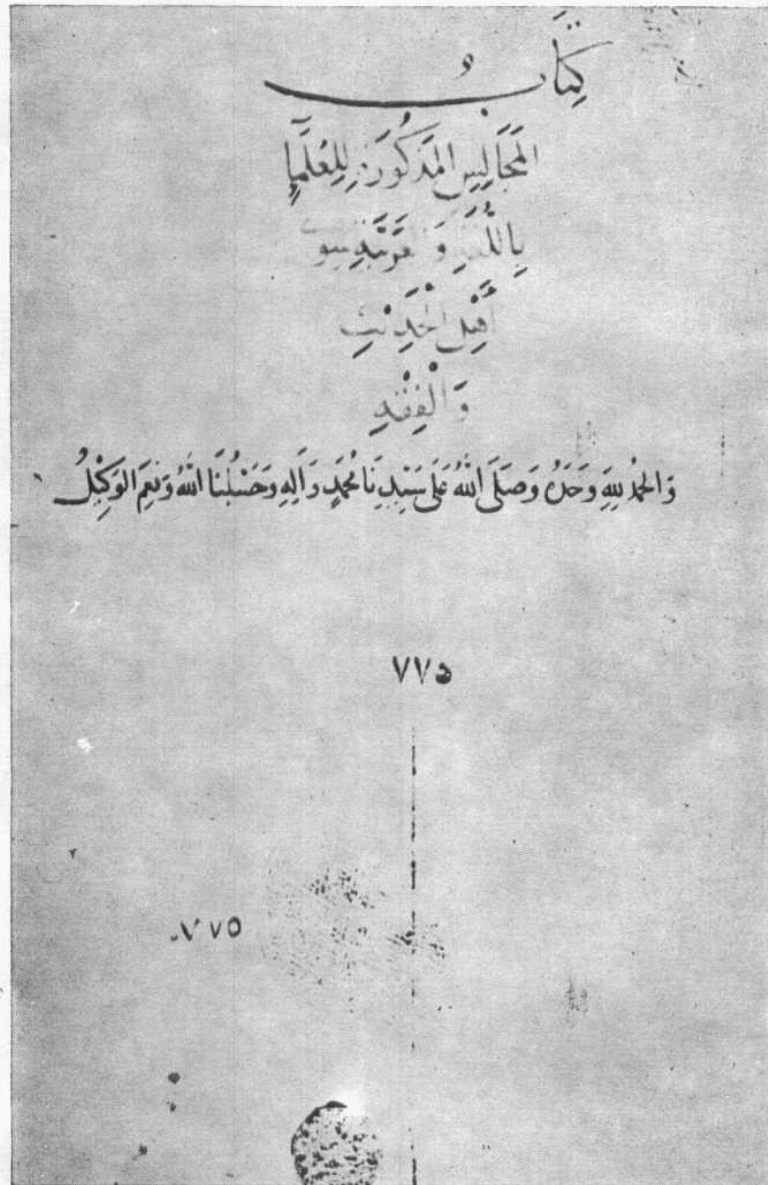 كِتَابُ
المَجَالِسِ المَذكُورَةِ لِلعُلَمَآءِ
بِاللُّغَةِ وَالعَرَبِيَّةِ سِوَى
أَهْلِ الحَدِيْثِ
وَالْفِقْهِ
وَالحَمْدُ لِلّهِ وَحْدَهُ وَصَلَّى اللهُ عَلَى سَيِّدِنَا مُحَمَّدٍ وَآلِهِ وَحَسْبُنَا اللهُ وَنِعْمَ الوَكِيْلُ
٧٧٥
٧٧٥